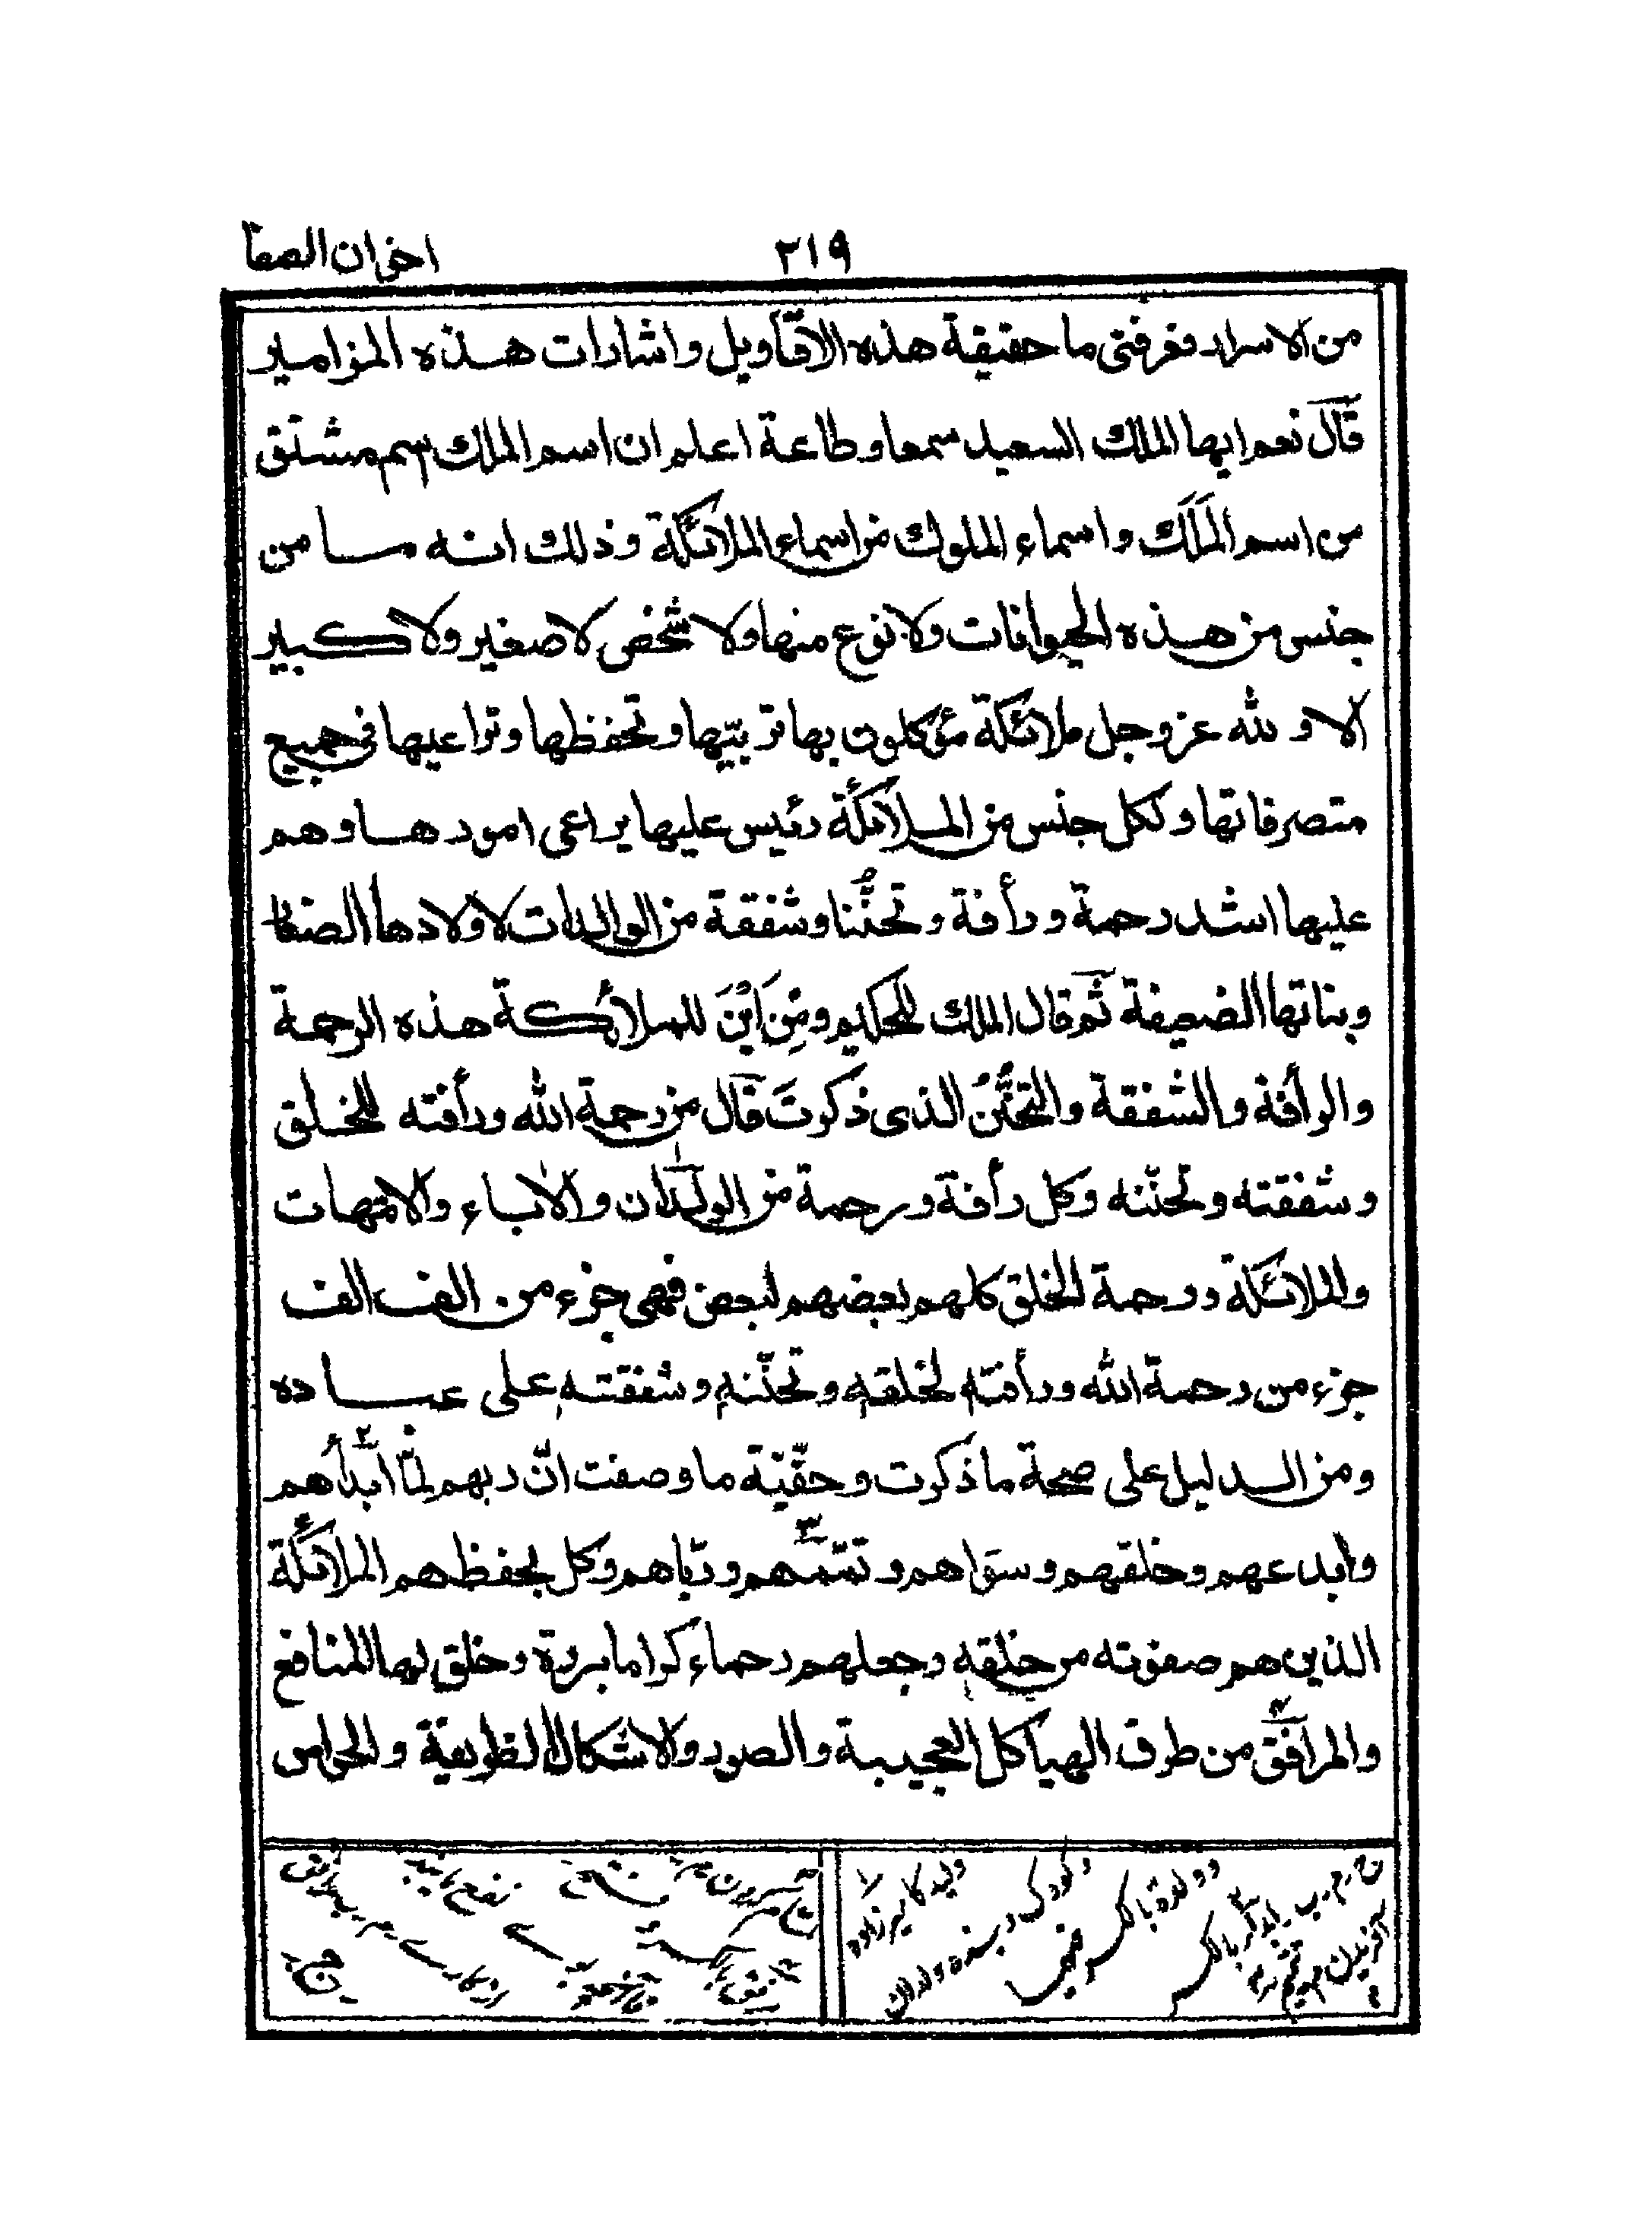 ٢١٩ اخوان الصفا
من الاسرار فعرفتى ما حقيقة هذه الاقاويل واشارات هذه المزامير
قال نعم ايها الملك السعيد سمعا وطاعة اعلم ان اسم الملك اسم مشتق
من اسم المَلَك واسماء الملوك من اسماء الملائكة وذلك انه ما من
جنس من هذه الحيوانات ولا نوع منها ولا شخص لا صغير ولا كبير
الا ولله عز وجل ملائكة مؤكلون بها تربّيها وتحفظها وتراعيها فى جميع
متصرفاتها ولكل جنس من الملائكة رئيس عليها يراعى امورها وهم
عليها اشد رحمة ورأفة وتحنُّنا وشفقة من الوالدات لاولادها الصغار
وبناتها الضعيفة ثم قال الملك للحكيم ومِن اَيْنَ للملائكة هذه الرحمة
والرأفة والشفقة والتحنُّنُ الذى ذكرتَ قال من رحمة الله ورأفته للخلق
وشفقته وتحنّنه وكل رأفة ورحمة من الولدان والاباء والامّهات
والملائكة ورحمة الخلق كلهم بعضهم لبعض فهى جزء من الف الف
جزء من رحمة الله ورأفته لخلقه وتحنّنه وشفقته على عباده
ومن الدليل على صحة ما ذكرت وحقّيّة ما وصفت انّ ربهم لمّا ابدأهم
وابدعهم وخلقهم وسوّاهم وتمّمهم وربّاهم وكل بحفظهم الملائكة
الذين هم صفوته من خلقه وجعلهم رحماء كراما بررة وخلق لها المنافع
والمرافق من طرف الهياكل العجيبة والصور والاشكال الظريفة والحواس